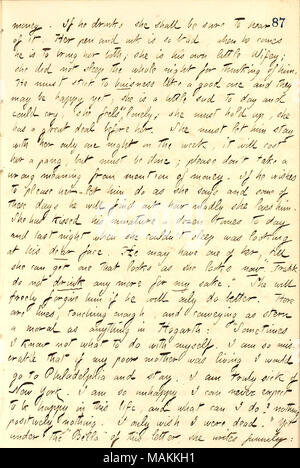 87
money. If he drinks she shall be sure to hear
of it. Her pen and ink is so bad when he comes
he is to bring her both; she is his own little Wifey;
she did not sleep the whole night for thinking of him.
He must start to business like a good one and they
may be happy yet; she is a little sad to day and
could cry, she feels lonely; she must hold up, she
has a great deal before her. She must let him stay
with her only one night in the week, it will cost
her a pang, but must be done; please don't take a
wrong meaning from mention of money. If he wishes
to please her let him do as she says and some of
these days he will find out how madly she loves him.
She has kissed his miniature a dozen times to day
and last night when she couldn't sleep was looking
at his dear face. He may have one of her, till
she can get one that looks as she looks now. Frank
do not drink any more for my sake! She will
freely forgive him if he will only do better. Hor-
rors lines, touching enough, and conveying as stern
a moral as anything in Hogarth: "Sometimes
I know not what to do with myself. I am so mis-
erable that if my poor mother was living I would
go to Philadelphia and stay. I am truly sick of
New York. I am so unhappy I can never expect
to be happy in this life, and what can I do? nothing
positively nothing. I only wish I were dead." Yet
under the of this letter she writes
alamy
MAKKH1